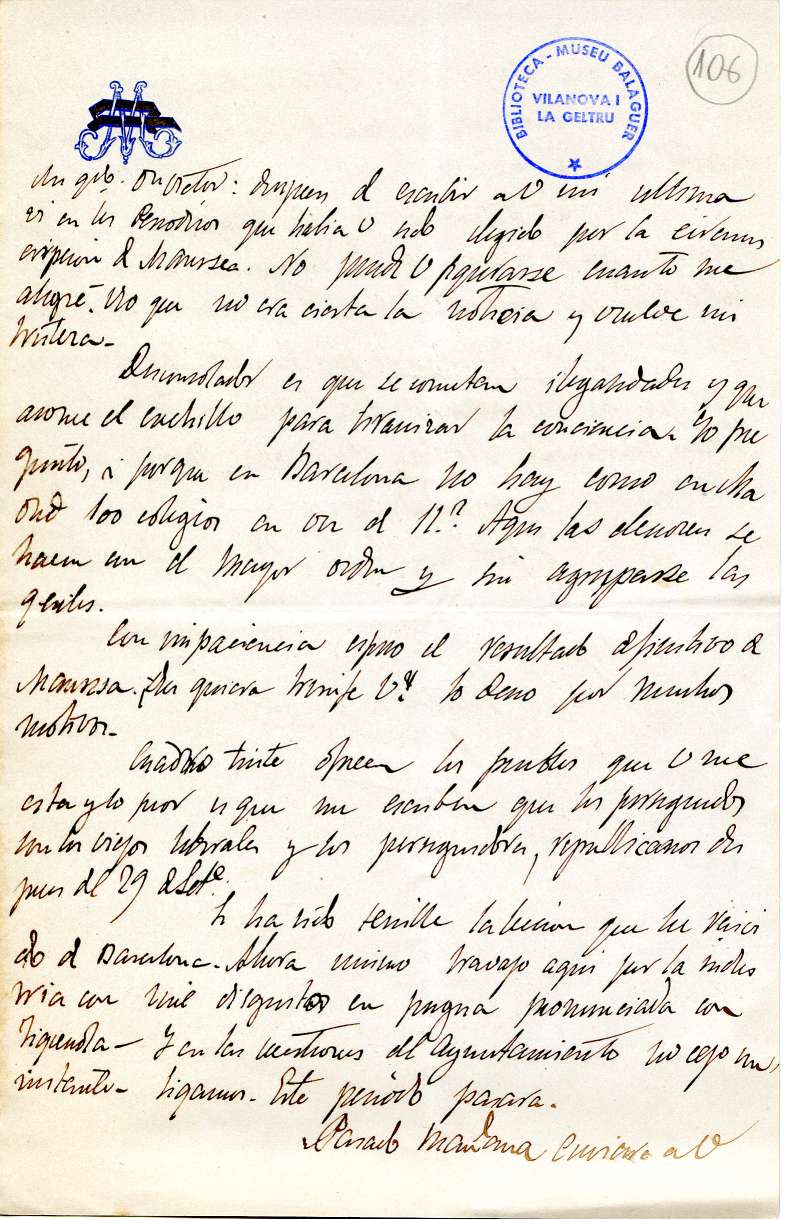 106
BIBLIOTECA - MUSEU BALAGUER
VILANOVA I
LA GELTRU
Mi qdo. Dn Victor: despues de escribir a V mi ultima
vi en los periodicos que habia V sido elegido por la circuns
cripcion de Manresa. No puede V figurarse cuanto me
alegré. Veo que no era cierta la noticia y vuelve mi
tristeza.
Desconsolador es que se cometan ilegalidades y que
asome el cuchillo para tiranizar la conciencia. Yo pre
gunto, ¿ porque en Barcelona no hay como en Ma
drid 100 colegios en vez de 12? Aqui las elecciones se
hacen con el mayor orden y sin agruparse las
gentes.
Con impaciencia espero el resultado definitivo de
Manresa. Dios quiera triunfe V. lo deseo por muchos
motivos.
Cuadro triste ofrecen los pueblos que V me
esta y lo peor es que me escriben que los perseguidos
son los viejos liberales y los perseguidores, republicanos des
pues del 29 de Set.
Si ha sido sensible la leccion que he
do de Barcelona. Ahora mismo trabajo aqui por la indus
tria con mil disgustos en pugna pronunciada con
Figuerola - Y en las cuestiones del Ayuntamiento no cejo un
instante. Sigamos. Este periodo pasara.
Pasado mañana enviare a V